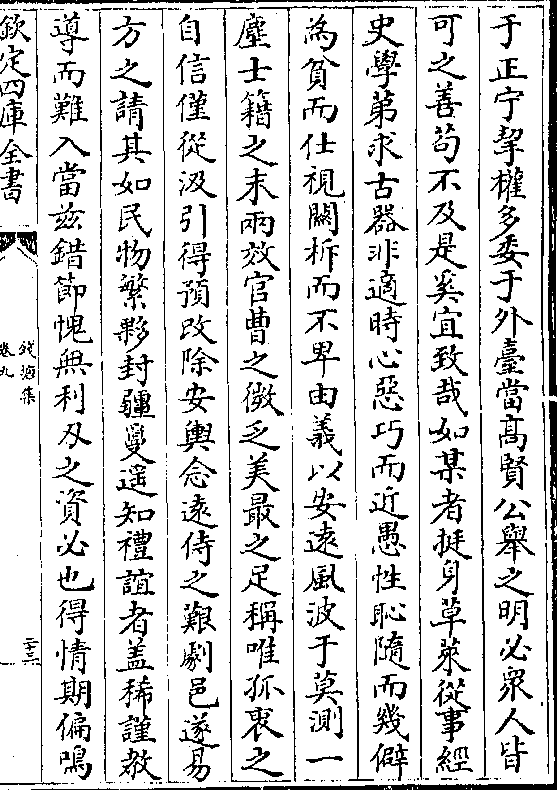 于正宁挈權多委于外臺當髙賢公舉之明必衆人皆
可之善苟不及是奚宜致哉如某者挺身草萊從事經
史學苐求古器非適時心惡巧而近愚性恥隨而幾僻
為貧而仕視關柝而不卑由義以安逺風波于莫測一
塵士籍之末兩效官曹之微乏美最之足稱唯孤衷之
自信僅從汲引得預改除安輿念逺侍之艱劇邑遂易
方之請其如民物繁夥封疆夐遥知禮誼者盖稀謹教
導而難入當兹錯節愧無利刄之資必也得情期偏鳴
欽定四庫全書
錢塘集
卷九
二十三